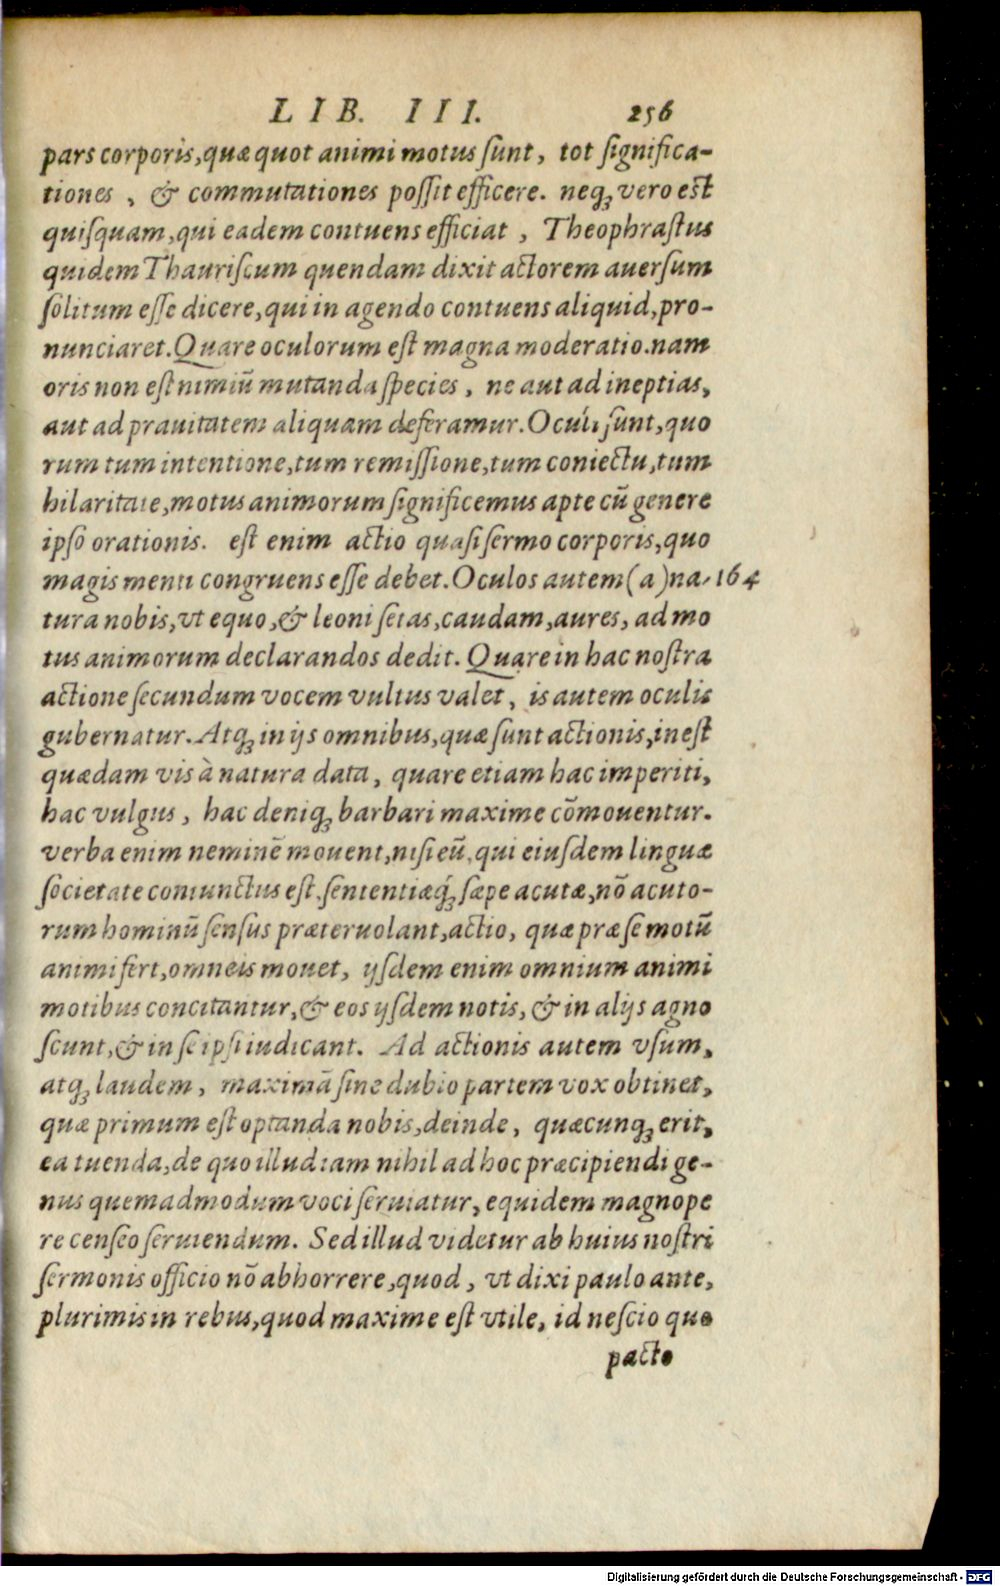 LIB. III. 256
pars corporis, quæ quot animi motus ſunt, tot ſignifica-
tiones, & commutationes poſſit efficere. neqꝫ vero eſt
quiſquam, qui eadem contuens efficiat, Theophraſtus
quidem Thauriſcum quendam dixit actorem auerſum
ſolitum eſſe dicere, qui in agendo contuens aliquid, pro-
nunciaret. Quare oculorum eſt magna moderatio. nam
oris non eſt nimiū mutanda ſpecies, ne aut ad ineptias,
aut ad prauitatem aliquam deferamur. Oculi ſunt, quo
rum tum intentione, tum remiſſione, tum coniectu, tum
hilaritate, motus animorum ſignificemus apte cū genere
ipſo orationis. eſt enim actio quaſi ſermo corporis, quo
magis menti congruens eſſe debet. Oculos autem (a) na- 164
tura nobis, vt equo, & leoni ſetas, caudam, aures, ad mo
tus animorum declarandos dedit. Quare in hac noſtra
actione ſecundum vocem vultus valet, is autem oculis
gubernatur. Atqꝫ in ijs omnibus, quæ ſunt actionis, ineſt
quædam vis à natura data, quare etiam hac imperiti,
hac vulgus, hac deniqꝫ barbari maxime cōmouentur.
verba enim neminē mouent, niſi eū, qui eiuſdem linguæ
ſocietate coniunctus eſt, ſententiæqꝫ́ ſæpe acutæ, nō acuto-
rum hominū ſenſus præteruolant, actio, quæ præ ſe motū
animi fert, omneis mouet, ijſdem enim omnium animi
motibus concitantur, & eos ijſdem notis, & in alijs agno
ſcunt, & in ſe ipſi iudicant. Ad actionis autem vſum,
atqꝫ laudem, maximā ſine dubio partem vox obtinet,
quæ primum eſt optanda nobis, deinde, quæcunqꝫ erit,
ea tuenda, de quo illud iam nihil ad hoc præcipiendi ge-
nus quemadmodum voci ſeruiatur, equidem magnope
re cenſeo ſeruiendum. Sed illud videtur ab huius noſtri
ſermonis officio nō abhorrere, quod, vt dixi paulo ante,
plurimis in rebus, quod maxime eſt vtile, id neſcio quo
pacto
Digitalisierung gefördert durch die Deutsche Forschungsgemeinschaft - DFG